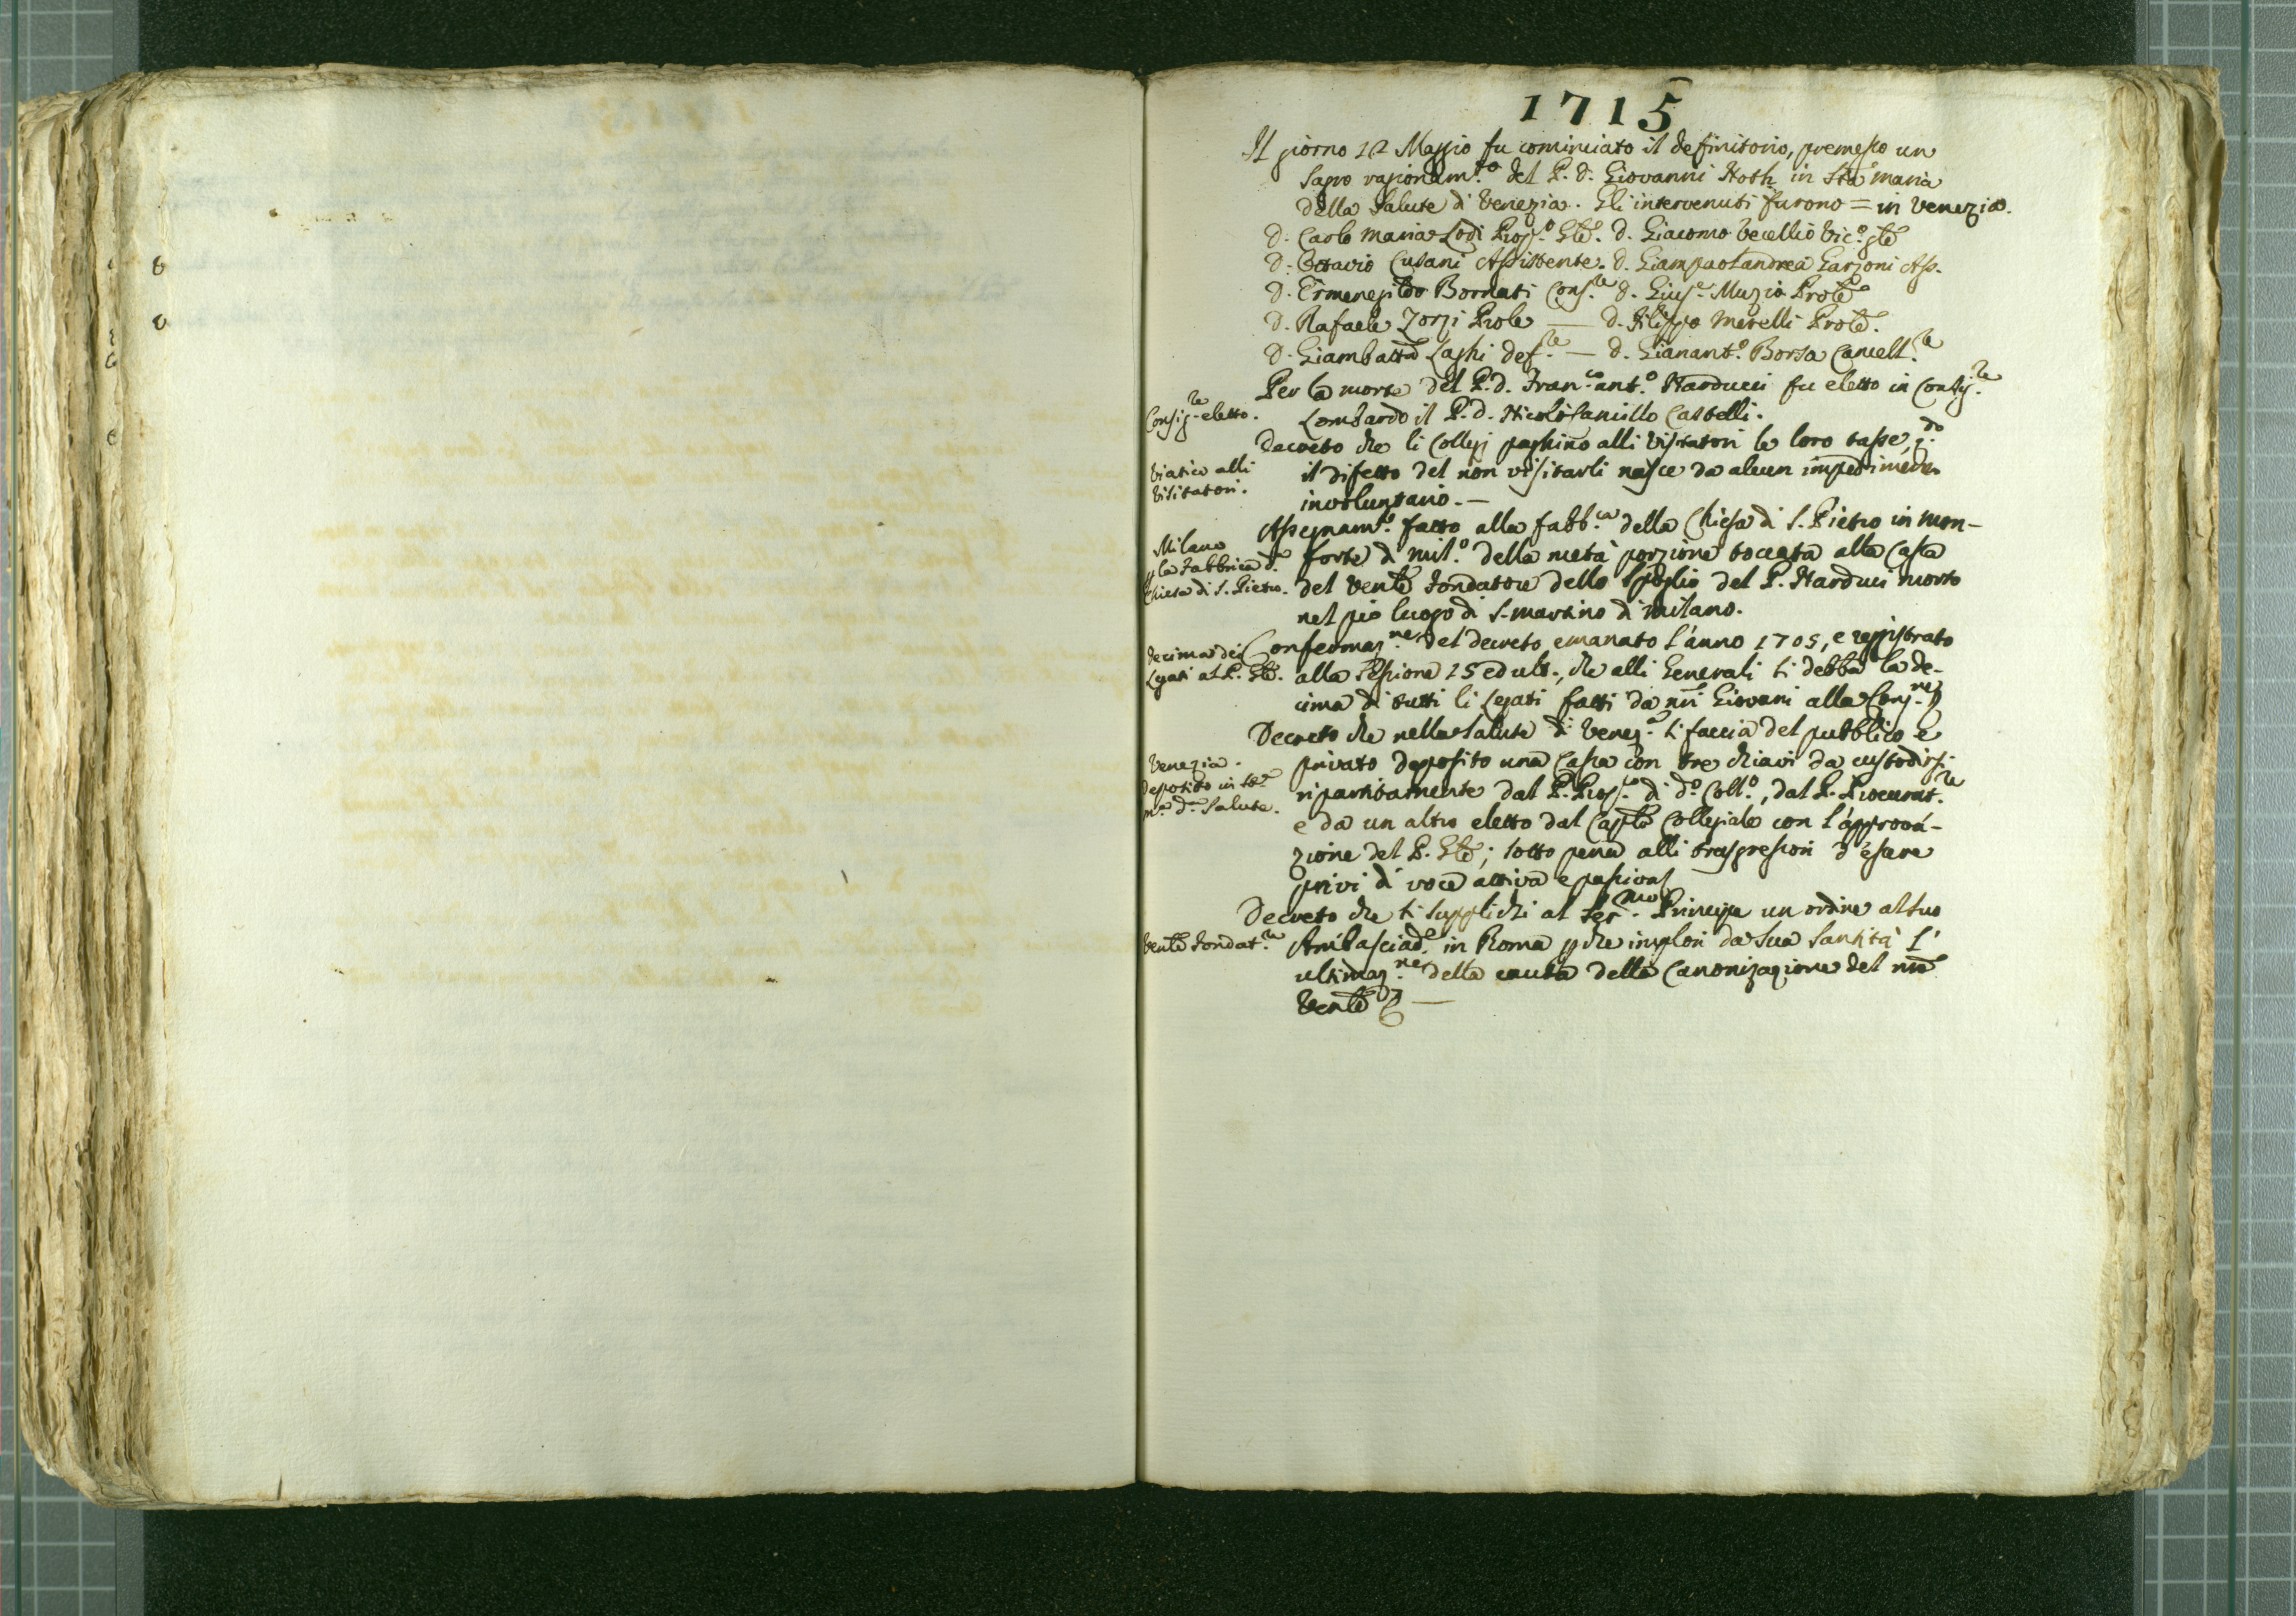 1715
Il giorno 12 Maggio fu cominciato il definitorio, premesso un
sagro ragionam.to del P. d. Giovanni in Sta maria
della Salute di Venezia. Gli intervenuti furono = in Venezia.
d. Carlo Maria Lodi Prop.o Gle. d. Giacomo Vecellio Vic.o gle
d. Ottavio Cusani Assistente. d. Giampaolandrea Garzoni Ass.
d. Ermenegildo Bornati Cons.re d. Gius.e Muzio Prole
d. Rafaele Zorzi Prole — d. Filippo Merelli Prole.
d. Giambatta Laghi def.re — d. Gianant.o Borsa Cancell.re
Per la morte del P. d. Fran.co ant.o Narducci fu eletto in Consig.re
Consig.re eletto.
Lombardo il P. d. Nicolò Camillo Castelli.
Decreto che li Collegj paghino alli Visitatori le loro tasse, q.do
Viatico alli
Visitatori.
il difetto del non visitarli nasce da alcun impedimento
involuntario. —
Assegnam.o fatto alla fabb.ca della Chiesa di S. Pietro in mon-
Milano
p la Fabbrica d.
Chiesa di S. Pietro.
forte di Mil.o della metà porzione toccata alla Casa
del Venle Fondatore dello Spoglio del P. Narducci morto
nel pio luogo di S. martino di milano.
Confermaz.ne del decreto emanato l'anno 1705, e registrato
decima dei
Legati al P. Gle.
alla Sessione 15 ed ult., che alli Generali si debba la de-
cima di tutti li Legati fatti da nri Giovani alla Cong.ne
Decreto che nella Salute di Venez.a si faccia del pubblico e
Venezia.
deposito in Sta
m.a d. Salute.
privato deposito una Cassa con tre chiavi da custodirsi
ripartitamente dal P. Prop.to di d.o Coll.o, dal P. Procurat.re
e da un altro eletto dal Caplo Collegiale con l'approva-
zione del P. Gle; sotto pena alli trasgressori d'essere
privi di voce attiva e passiva
Decreto che si supplichi al Ser.mo Principe un ordine al suo
Venle Fondat.re
Ambasciad.e in Roma p che implori da Sua Santità l'
ultimaz.ne della causa della Canonizazione del nro
Venle —